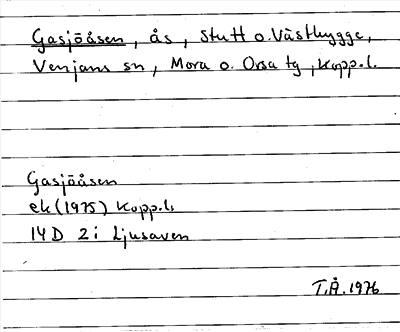 Gasjöåsen, ås, Stutt o. Västhygge,
Venjans sn, Mora o. Orsa tg, Kopp.l.
Gasjöåsen
ek (1975) Kopp.l.
14D 2i Ljusaven
T.Å. 1976